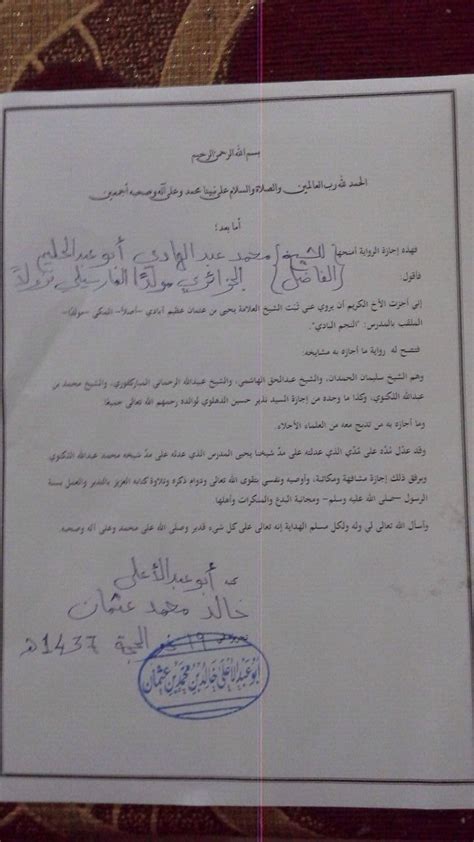 بسم الله الرحمن الرحيم
الحمد لله رب العالمين والصلاة والسلام على نبينا محمد وعلى آله وصحبه أجمعين
أما بعد؛
فهذه إجازة الرواية أمنحها للشيخ محمد عبد الهادي أبو عبد الحليم
فأقول: {الفاضل} الجزائري مولدًا الفارسيلي نزولاً
إني أجزت الأخ الكريم أن يروي عني ثبت الشيخ العلامة يحيى بن عثمان عظيم آبادي -أصلاً- المكي -مولدًا-
الملقب بالمدرس: "النجم البادي".
فتتصح له رواية ما أجازه به مشايخه:
وهم الشيخ سليمان الحمدان، والشيخ عبدالحق الهاشمي، والشيخ عبيدالله الرحماني المباركفوري، والشيخ محمد بن
عبدالله اللكنوي، وكذا ما وجده من إجازة السيد نذير حسين الدهلوي لوالده رحمهم الله تعالى جميعًا
وما أجازه به من تدبج معه من العلماء الأجلاء.
وقد عدّل مُدّه على مُدّي الذي عدلته على مدّ شيخنا يحيى المدرس الذي عدله على مدّ شيخه محمد عبدالله اللكنوي
ويرفق ذلك إجازة مشافهة ومكاتبة، وأوصيه ونفسي بتقوى الله تعالى ودوام ذكره وتلاوة كتابه العزيز بالتدبر والعمل بسنة
الرسول -صلى الله عليه وسلم- ومجانبة البدع والمنكرات وأهلها.
وأسأل الله تعالى لي وله ولكل مسلم الهداية إنه تعالى على كل شيء قدير وصلى الله على محمد وعلى آله وصحبه
أبو عبد الأعلى
خالد محمد عثمان
١٩ ذي الحجة 1437هـ
أبو عبد الأعلى خالد بن محمد بن عثمان